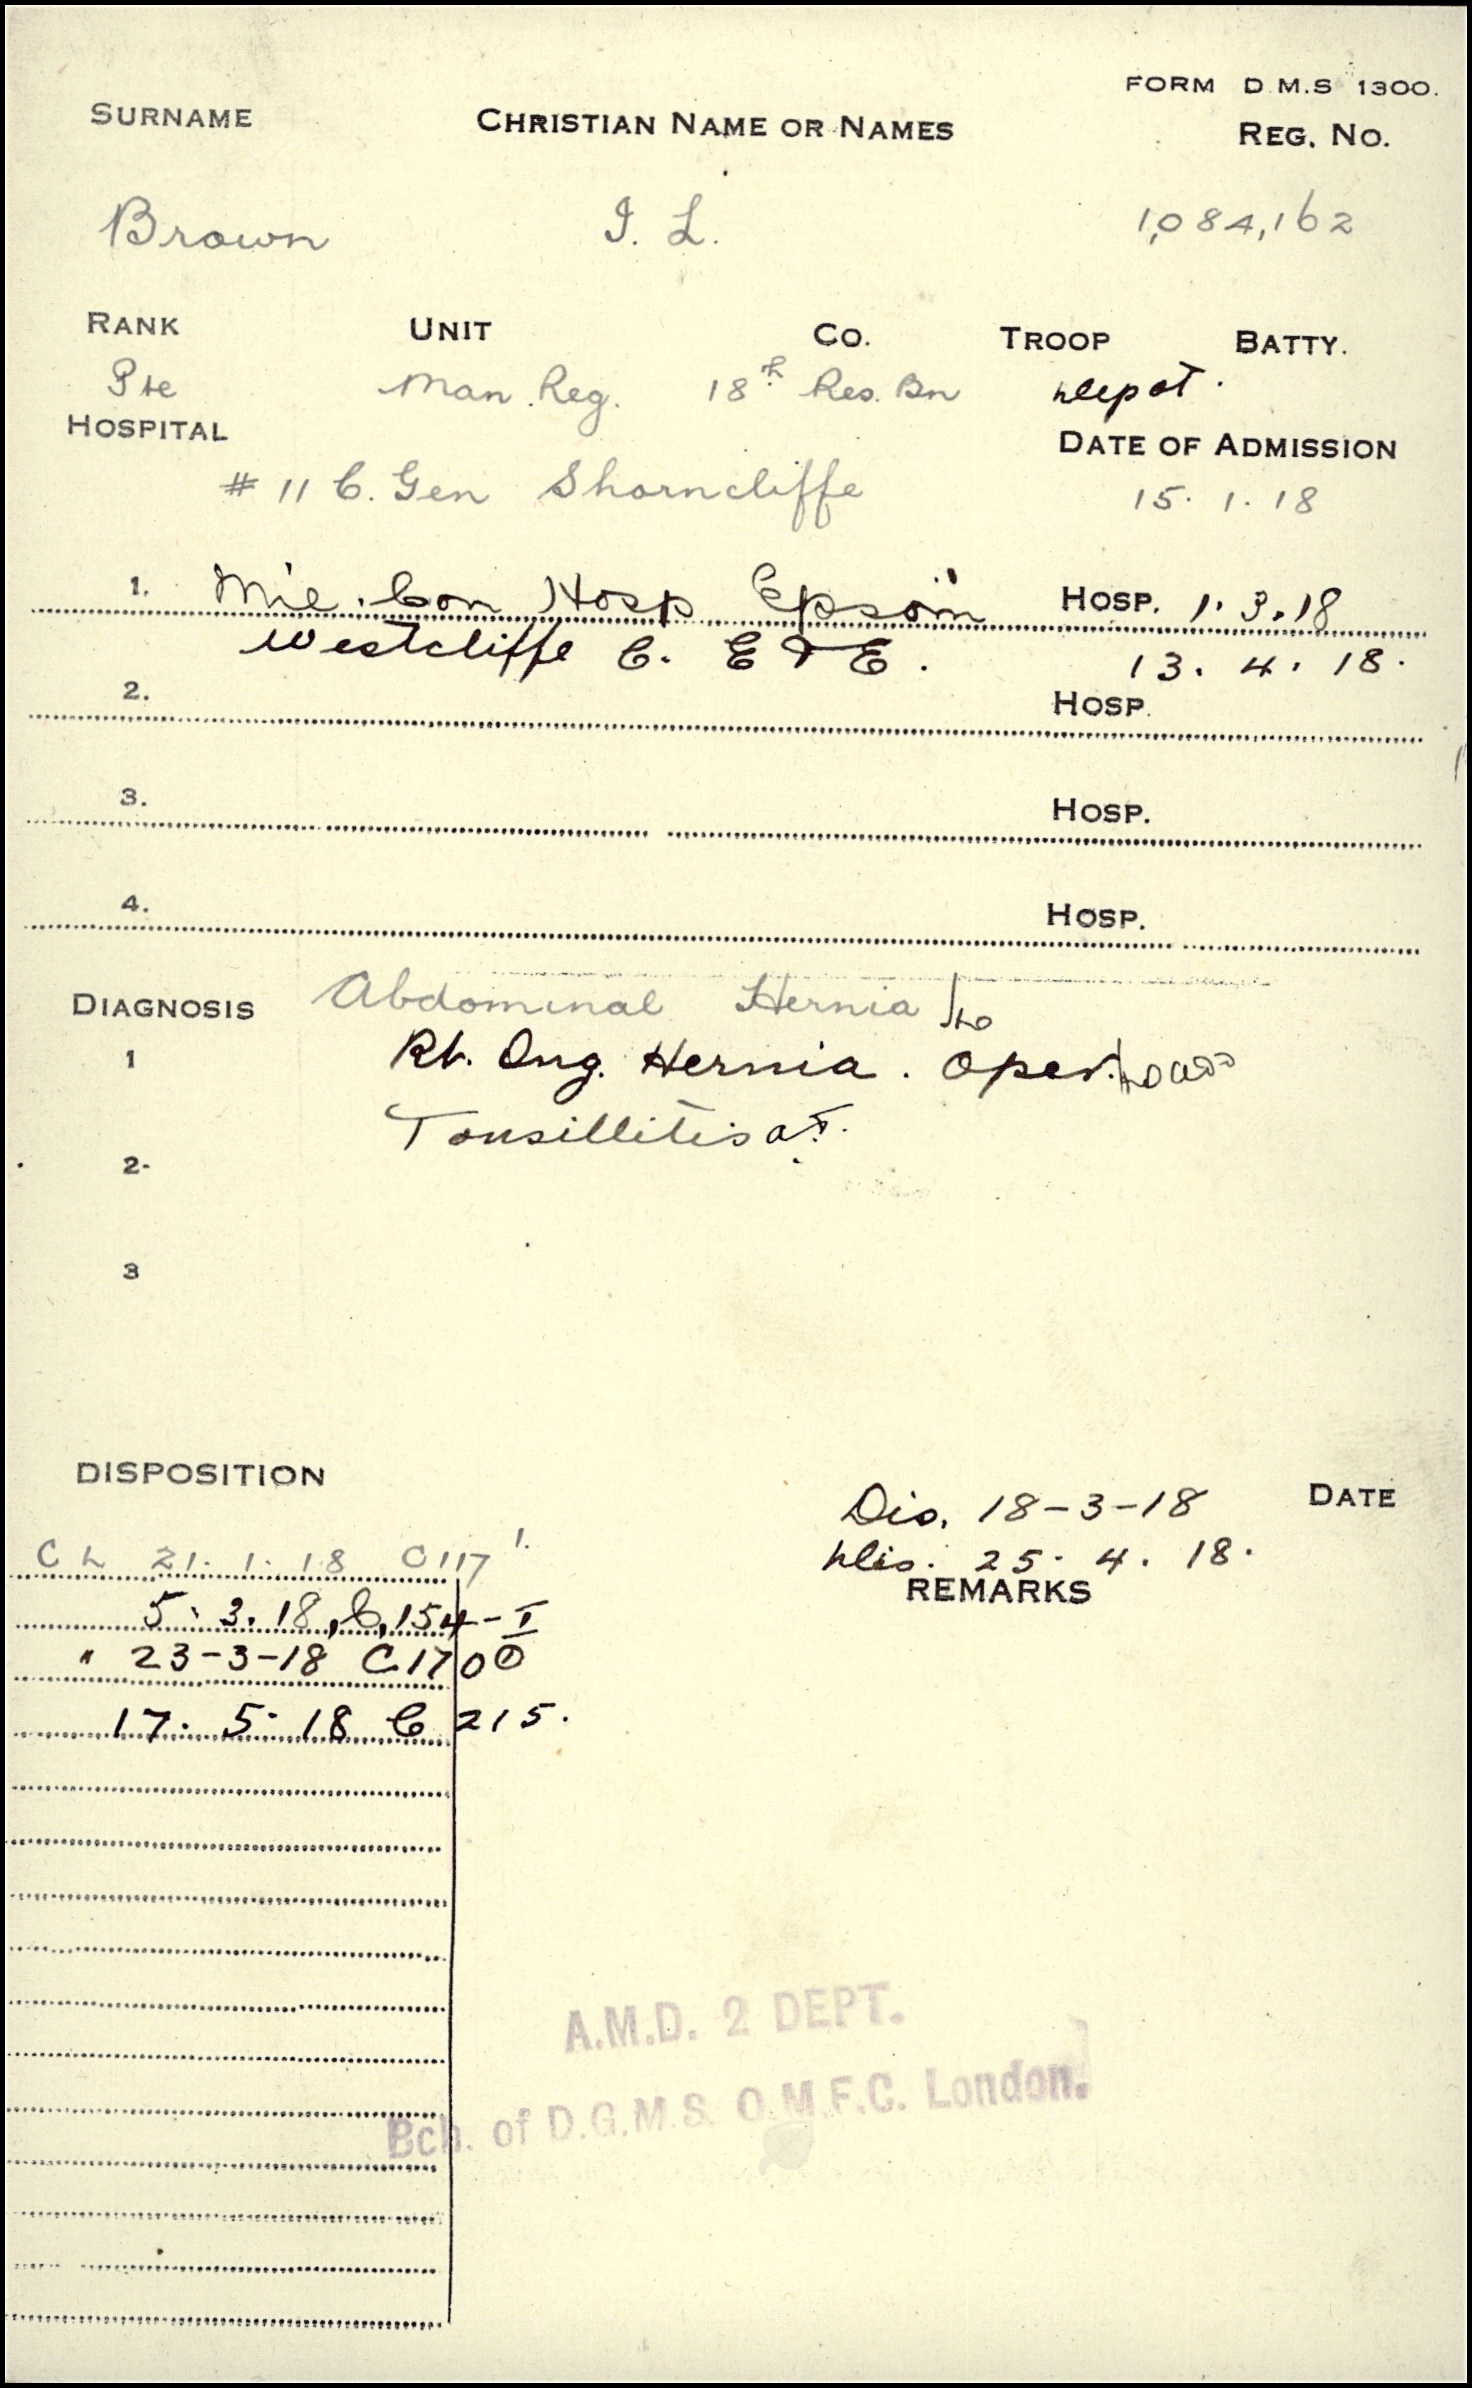 FORM D.M.S 1300.
SURNAME CHRISTIAN NAME OR NAMES REG. NO.
Brown I. L. 1,084,162
RANK UNIT CO. TROOP BATTY.
Pte Man. Reg. 18th Res. Bn Depot.
HOSPITAL DATE OF ADMISSION
# 11 C. Gen Shorncliffe 15. 1. 18
1. Mil. Con Hosp Epsom HOSP. 1.3.18
Westcliffe C. E & E. 13. 4. 18.
2. HOSP.
3. HOSP.
4. HOSP.
DIAGNOSIS Abdominal Hernia
1 Rt. Ing. Hernia. Oper.
Tonsillitis
2.
3
DISPOSITION
Dis. 18-3-18 DATE
C L 21. 1. 18 C117 1.
Dis. 25. 4. 18.
REMARKS
5. 3. 18, C, 154-I
" 23-3-18 C170 ①
17. 5. 18 C 215.
A.M.D. 2 DEPT.
Bch. of D.G.M.S. O.M.F.C. London.